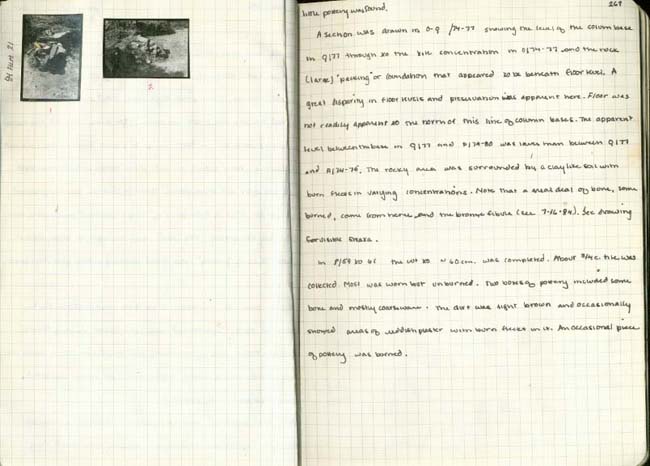 84 FILM 21
1
2.
269
little pottery was found.
A section was drawn in O-Q /74-77 showing the level of the column base
in Q177 through to the tile concentration in O174-77 and the rock
(large) "packing" or foundation that appeared to be beneath floor level. A
great disparity in floor levels and preservation was apparent here. Floor was
not readily apparent to the north of this line of column bases. The apparent
level between the base in Q177 and 74-80 was less than between Q177
and 74-76. The rocky area was surrounded by a clay like soil with
burn flecks in varying concentrations. Note that a great deal of bone, some
burned, came from here, and the bronze fibula (see 7-16-84). See drawing
for visible strata.
In P/59 to 61 the wt to ~ 60 cm. was completed. About 3/4 c. tile was
collected. Most was worn but unburned. Two boxes of pottery included some
bone and mostly coarseware. The dirt was light brown and occasionally
showed areas of reddish plaster with burn flecks in it. An occasional piece
of pottery was burned.